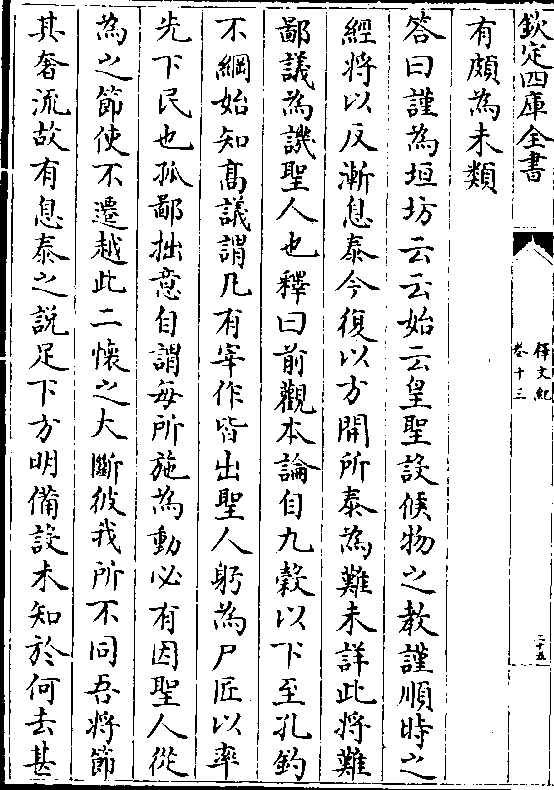 欽定四庫全書
釋文紀
卷十三
二十五
有頗為未類
答曰謹為垣坊云云始云皇聖設候物之教謹順時之
經將以反漸息泰今復以方開所泰為難未詳此將難
鄙議為譏聖人也釋曰前觀本論自九穀以下至孔釣
不綱始知高議謂凡有宰作皆出聖人躬為尸匠以率
先下民也孤鄙拙意自謂每所施為動必有因聖人從
為之節使不遷越此二懷之大斷彼我所不同吾將節
其奢流故有息泰之說足下方明備設未知於何去甚